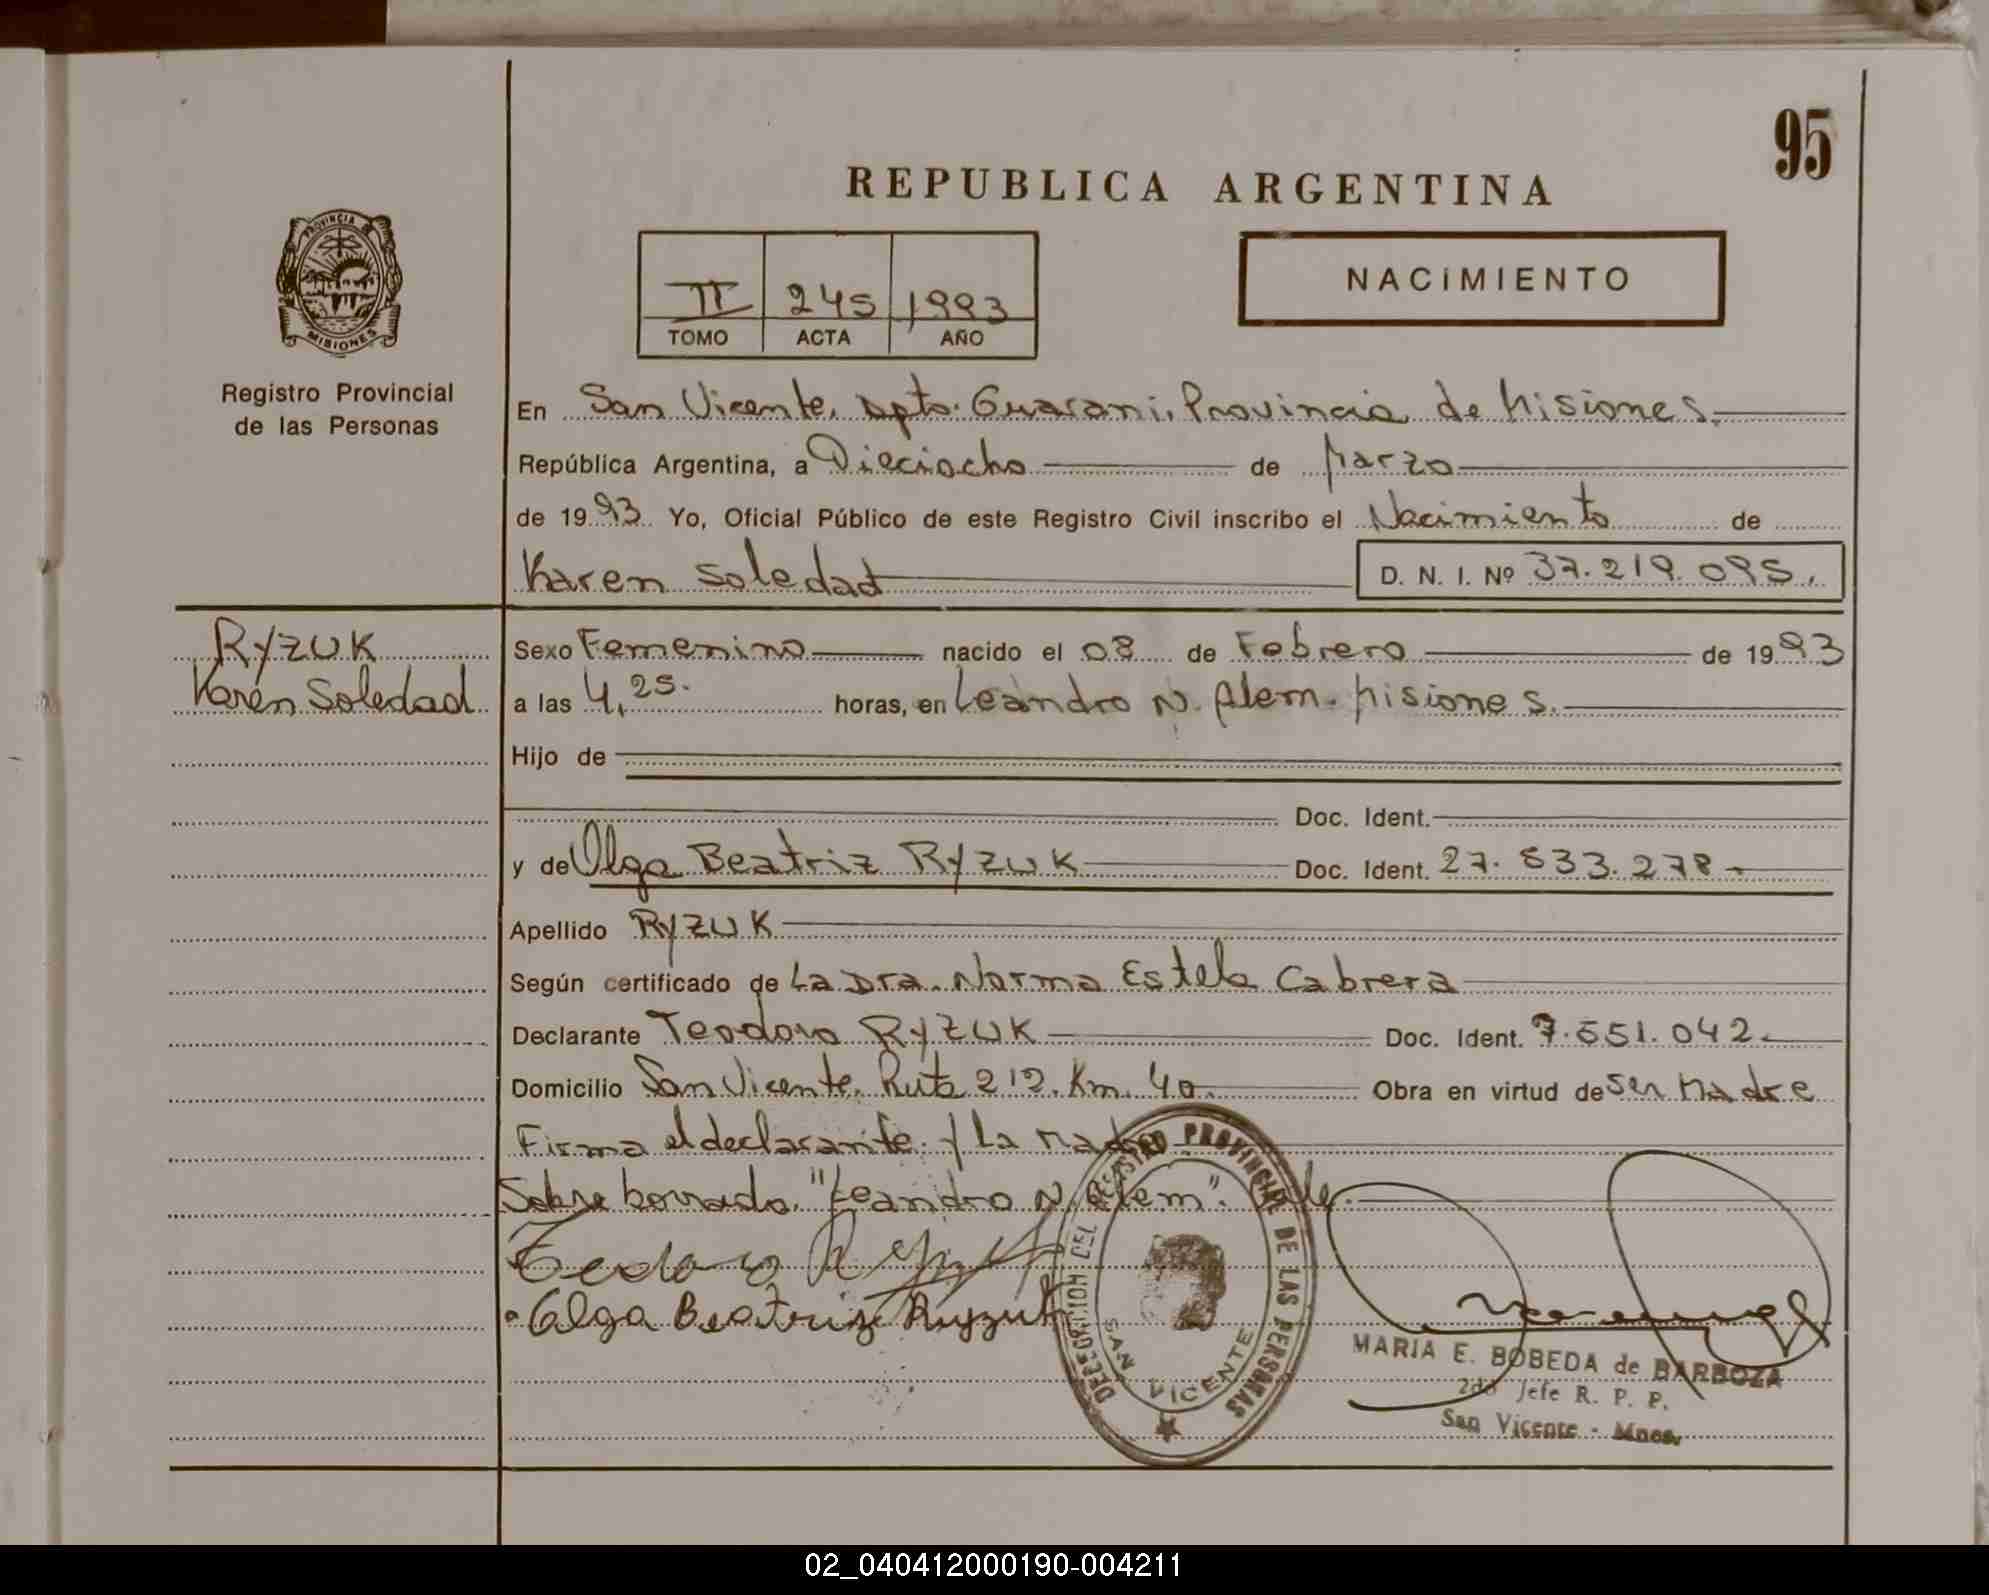 95
REPUBLICA ARGENTINA
PROVINCIA DE MISIONES
II 245 1993
TOMO ACTA AÑO
NACIMIENTO
Registro Provincial
de las Personas
En San Vicente, Dpto. Guarani, Provincia de Misiones.
República Argentina, a Dieciocho de Marzo
de 1993 Yo, Oficial Público de este Registro Civil inscribo el Nacimiento de
Karen Soledad D. N. I. Nº 37.219.095.
RYZUK
Karen Soledad
Sexo Femenino nacido el 08 de Febrero de 1993
a las 4,25. horas, en Leandro N. Alem. Misiones.
Hijo de
Doc. Ident.
y de Olga Beatriz RYZUK Doc. Ident. 27.533.278
Apellido RYZUK
Según certificado de La Dra. Norma Estela Cabrera
Declarante Teodoro RYZUK Doc. Ident. 7.551.042
Domicilio San Vicente, Ruta 212. Km. 40. Obra en virtud de ser Madre
Firma el declarante. y La Madre
Sobre borrado. "Leandro N. Alem". Vale.
Teodoro Ryzuk
Olga Beatriz Ryzuk
DELEGACION DEL REGISTRO PROVINCIAL DE LAS PERSONAS
SAN VICENTE
MARIA E. BOBEDA de BARBOZA
2do Jefe R. P. P.
San Vicente - Mnes.
02_040412000190-004211